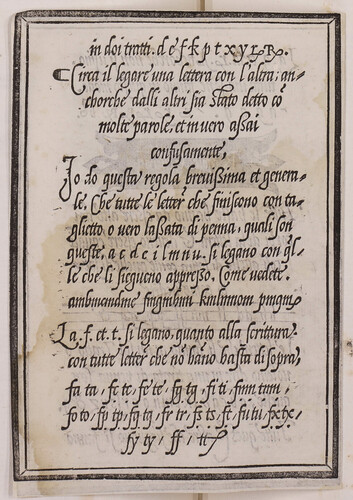 in doi tratti. d e f k p t x y Ꝝ R.
Circa il legare una lettera con l'altra; an-
chorche dalli altri sia stato detto cō
molte parole, et in uero assai
confusamente,
Io do questa regola breuissima et genera-
le, Che tutte le letter' che finiscono con ta-
glietto o uero lassata di penna, quali son
queste, a c d e i l m n u. si legano con q̄l-
le che li sieguono appresso. Come uedete.
La .f. et .t. si legano, quanto alla scrittura
con tutte letter che nō hāno hasta di sopra,
fa ta, fc tc, fe te, fg tg, fi ti, fm tm,
fo to, fp tp, fq tq, fr tr, fs ts, ft, fu tu, fx tx,
fy ty, ff, tt